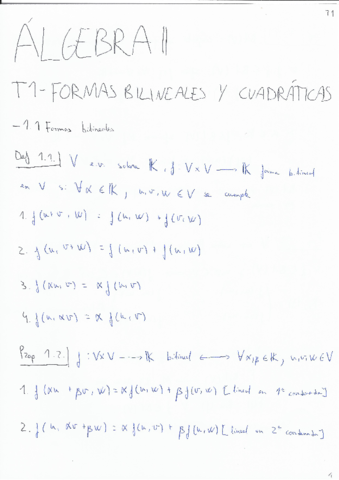 71
ÁLGEBRA II
T1-FORMAS BILINEALES Y CUADRÁTICAS
-1.1 Formas bilineales
Def 1.1.| V e.v. sobre K, f: V×V → K forma bilineal
en V si ∀α ∈ K, u,v,w ∈ V se cumple
1. f(u+v, w) = f(u,w) + f(v,w)
2. f(u, v+w) = f(u,v) + f(u,w)
3. f(αu, v) = α f(u,v)
4. f(u, αv) = α f(u,v)
Prop 1.2.| f: V×V → K bilineal ⟷ ∀α,β ∈ K, u,v,w ∈ V
1. f(αu + βv, w) = α f(u,w) + β f(v,w) [lineal en 1ª coordenada]
2. f(u, αv + βw) = α f(u,v) + β f(u,w) [lineal en 2ª coordenada]